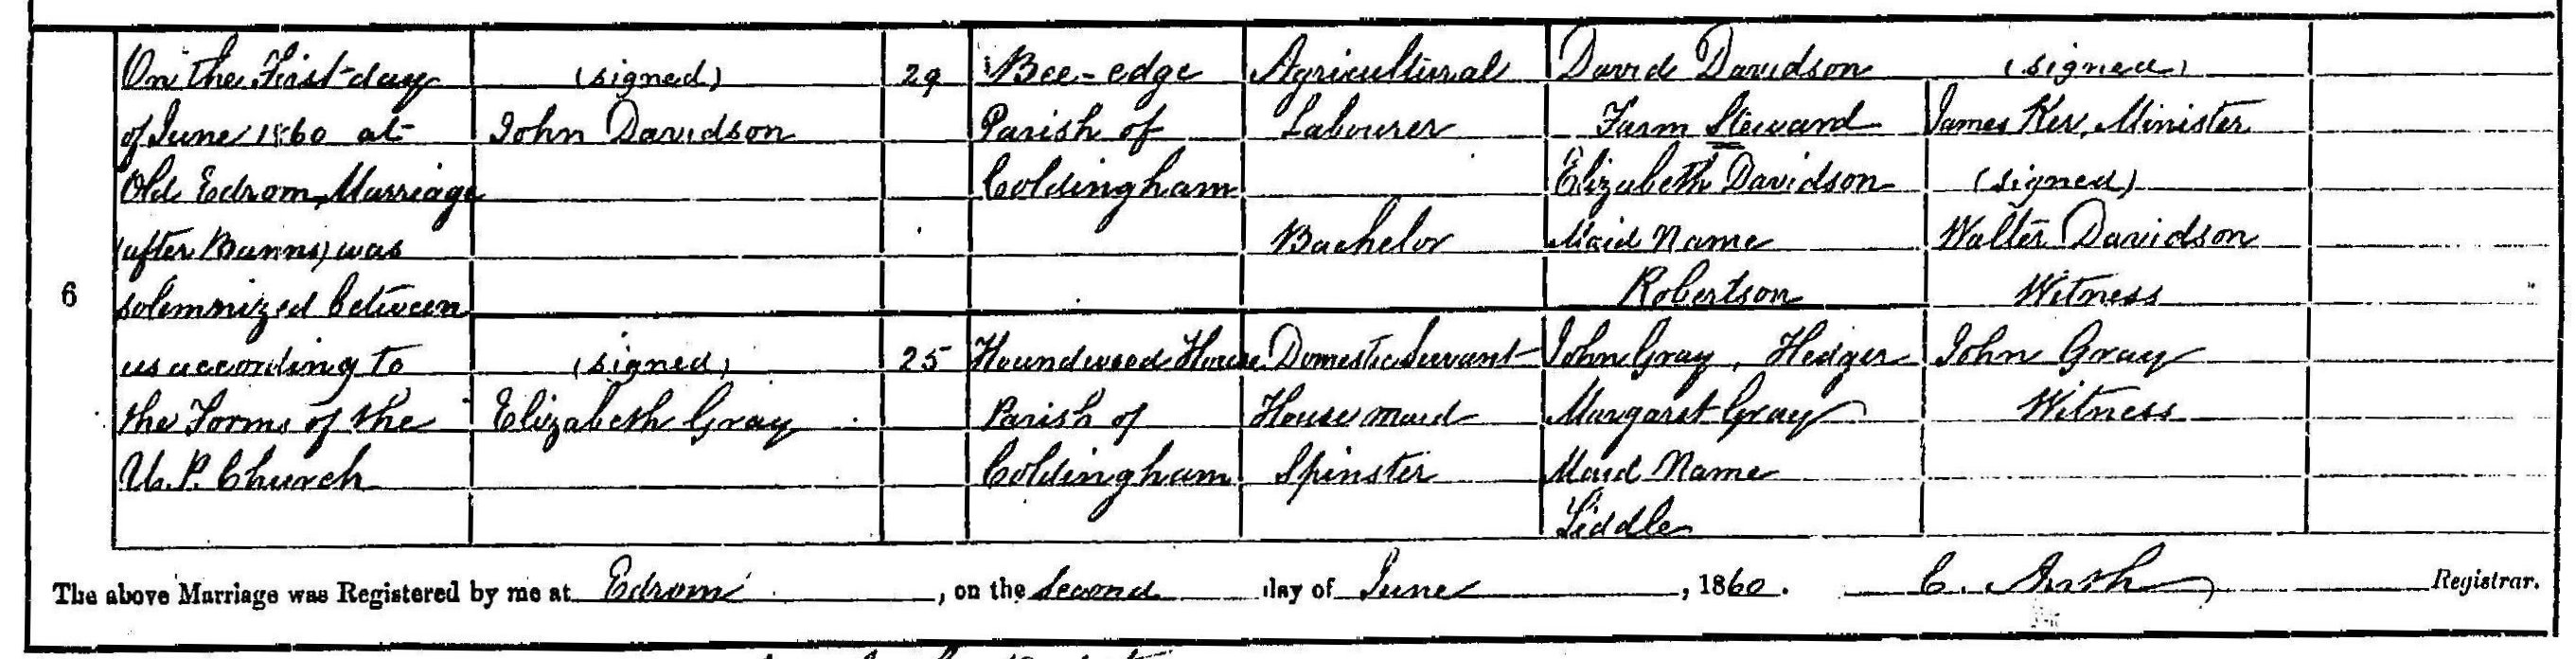 6
On the First day
of June 1860 at
Old Edrom, Marriage
(after Banns) was
solemnized between
us according to
the Forms of the
U. P. Church
(signed)
John Davidson
(signed)
Elizabeth Gray
29
25
Bee-edge
Parish of
Coldingham
Houndwood House
Parish of
Coldingham
Agricultural
Labourer
Bachelor
Domestic Servant
House maid
Spinster
David Davidson
Farm Steward
Elizabeth Davidson
Maid Name
Robertson
John Gray, Hedger
Margaret Gray
Maid Name
Liddle
(signed)
James Ker, Minister
(signed)
Walter Davidson
Witness
John Gray
Witness
The above Marriage was Registered by me at Edrom, on the Second day of June, 1860. C. Registrar.